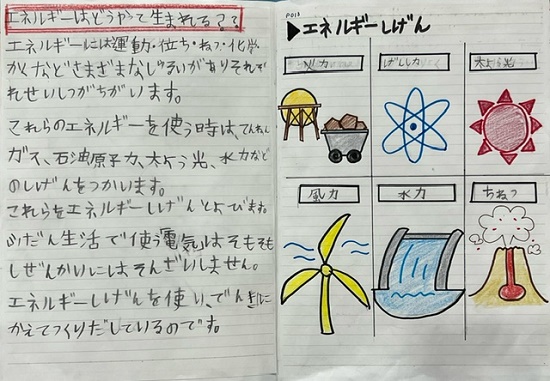 エネルギーはどうやって生まれる??
エネルギーには運動・位ち・ねつ・化学
かくなどさまざまなしゅるいがありそれぞ
れせいしつがちがいます。
これらのエネルギーを使う時は、てんねん
ガス、石油原子力、太よう光、水力などの
しげんをつかいます。
これらをエネルギーしげんとよびます。
ふだん生活で使う電気はそもそも
しぜんかいにはそんざいしません。
エネルギーしげんを使い、でん気に
かえてつくりだしているのです。
▶エネルギーしげん
火力
げんし力
太よう光
風力
水力
ちねつ